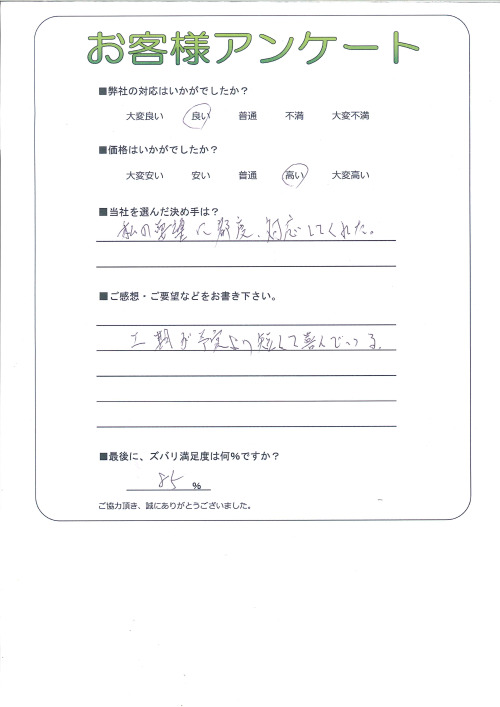 お客様アンケート
■弊社の対応はいかがでしたか?
大変良い 良い 普通 不満 大変不満
■価格はいかがでしたか?
大変安い 安い 普通 高い 大変高い
■当社を選んだ決め手は?
私の要望に都度、対応してくれた。
■ご感想・ご要望などをお書き下さい。
工期が予定より短くて喜んでいる。
■最後に、ズバリ満足度は何%ですか?
85 %
ご協力頂き、誠にありがとうございました。